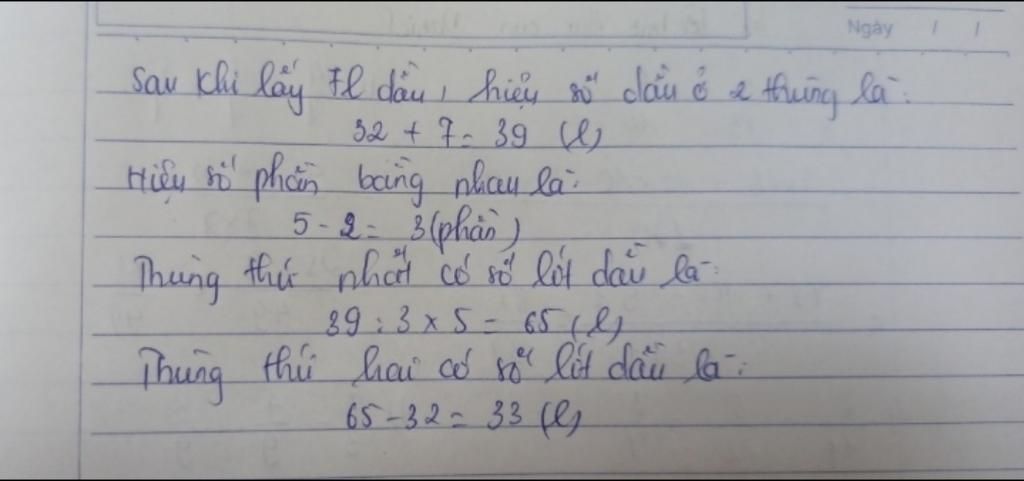 Ngày / /
Sau khi lấy 7l dầu, hiệu số dầu ở 2 thùng là:
32 + 7 = 39 (l)
Hiệu số phần bằng nhau là:
5 - 2 = 3 (phần)
Thùng thứ nhất có số lít dầu là:
39 : 3 x 5 = 65 (l)
Thùng thứ hai có số lít dầu là:
65 - 32 = 33 (l)